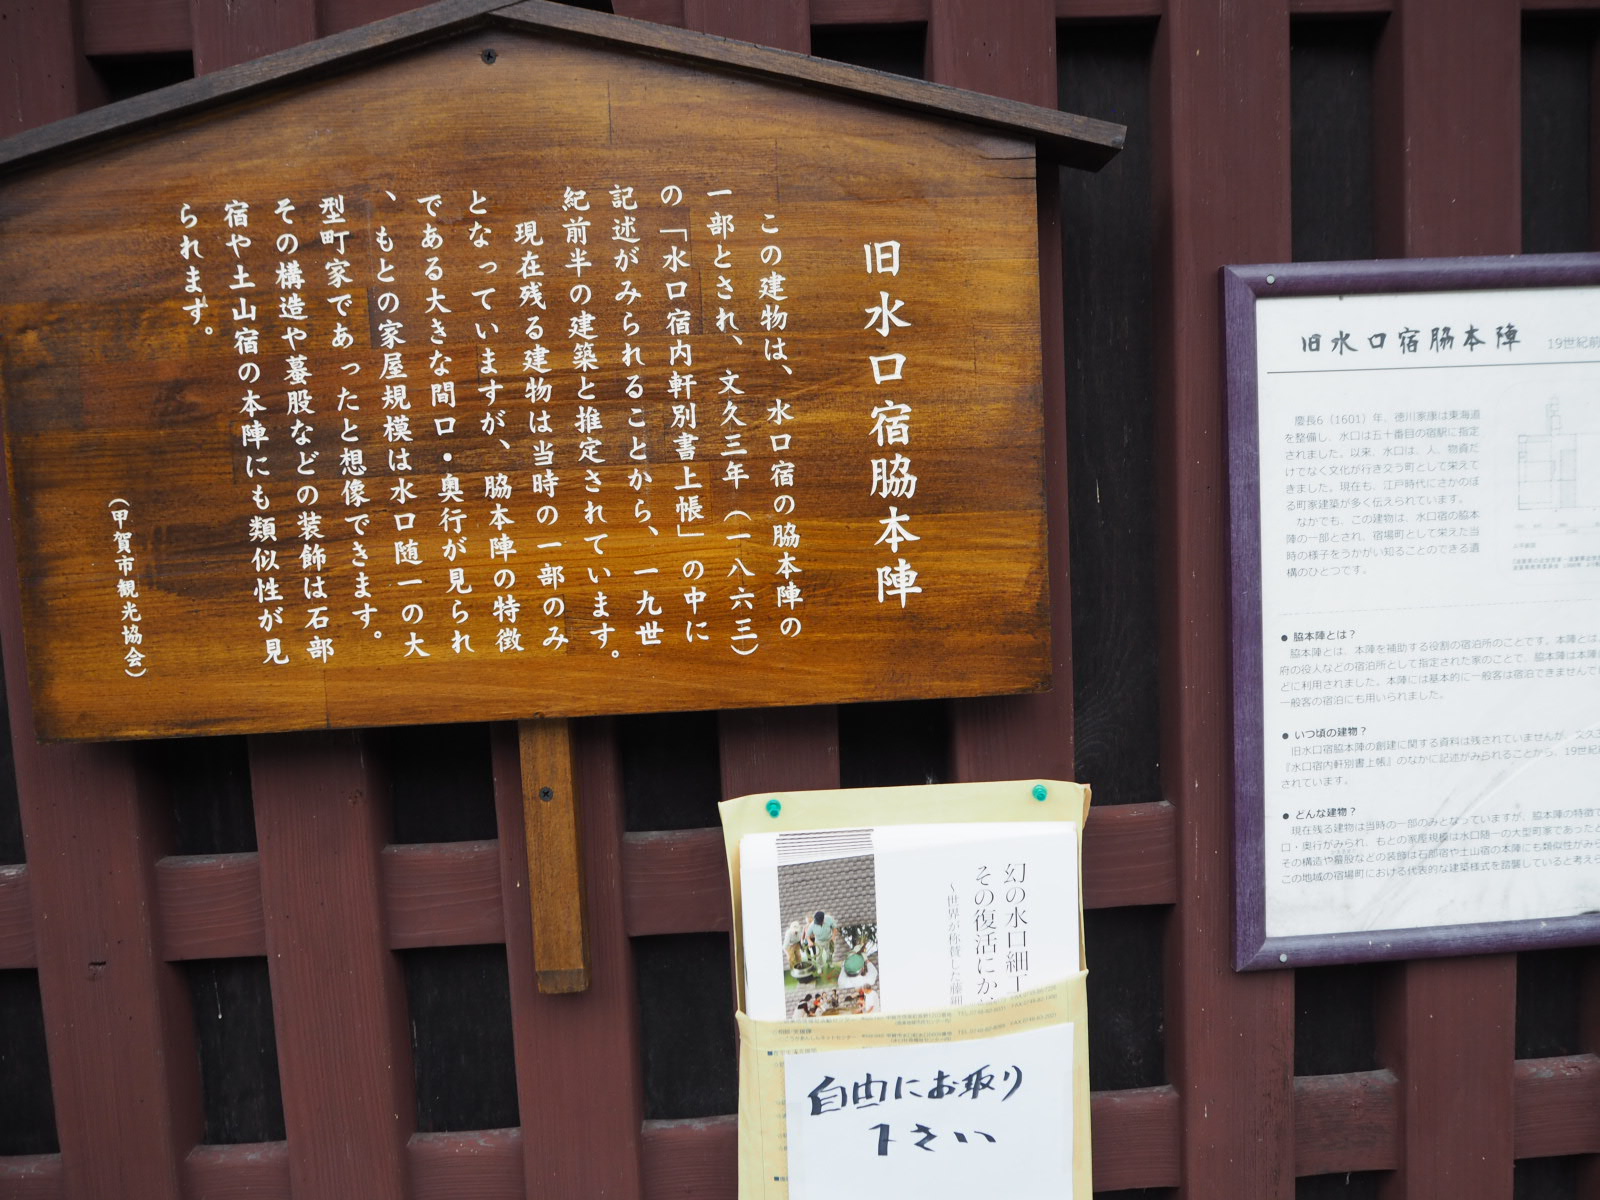 旧水口宿脇本陣
この建物は、水口宿の脇本陣の
一部とされ、文久三年(一八六三)
の「水口宿内軒別書上帳」の中に
記述がみられることから、一九世
紀前半の建築と推定されています。
現在残る建物は当時の一部のみ
となっていますが、脇本陣の特徴
である大きな間口・奥行が見られ
、もとの家屋規模は水口随一の大
型町家であったと想像できます。
その構造や蟇股などの装飾は石部
宿や土山宿の本陣にも類似性が見
られます。
(甲賀市観光協会)
旧水口宿脇本陣 19世紀前
慶長6(1601)年、徳川家康は東海道
を整備し、水口は五十番目の宿駅に指定
されました。以来、水口は、人、物資だ
けでなく文化が行き交う町として栄えて
きました。現在も、江戸時代にさかのぼ
る町家建築が多く伝えられています。
なかでも、この建物は、水口宿の脇本
陣の一部とされ、宿場町として栄えた当
時の様子をうかがい知ることのできる遺
構のひとつです。
● 脇本陣とは?
脇本陣とは、本陣を補助する役割の宿泊所のことです。本陣とは、
府の役人などの宿泊所として指定された家のことで、脇本陣は本陣
どに利用されました。本陣には基本的に一般客は宿泊できませんで
一般客の宿泊にも用いられました。
● いつ頃の建物?
旧水口宿脇本陣の創建に関する資料は残されていませんが、文久
『水口宿内軒別書上帳』のなかに記述がみられることから、19世紀
されています。
● どんな建物?
現在残る建物は当時の一部のみとなっていますが、脇本陣の特徴で
口・奥行がみられ、もとの家屋規模は水口随一の大型町家であったと
その構造や蟇股などの装飾は石部宿や土山宿の本陣にも類似性がみら
この地域の宿場町における代表的な建築様式を踏襲していると考えら
幻の水口細工
その復活にか
~世界が称賛した藤細
自由にお取り
下さい